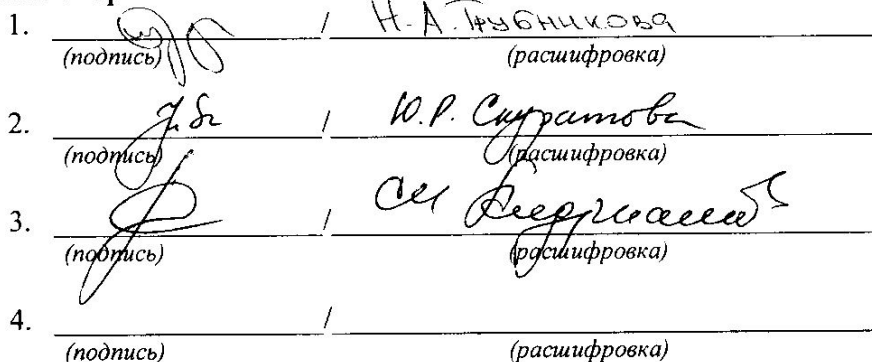 1. / Н.А. Трубникова
(подпись) (расшифровка)
2. / Ю.Р. Скуратова
(подпись) (расшифровка)
3. / СИ
(подпись) (расшифровка)
4. /
(подпись) (расшифровка)